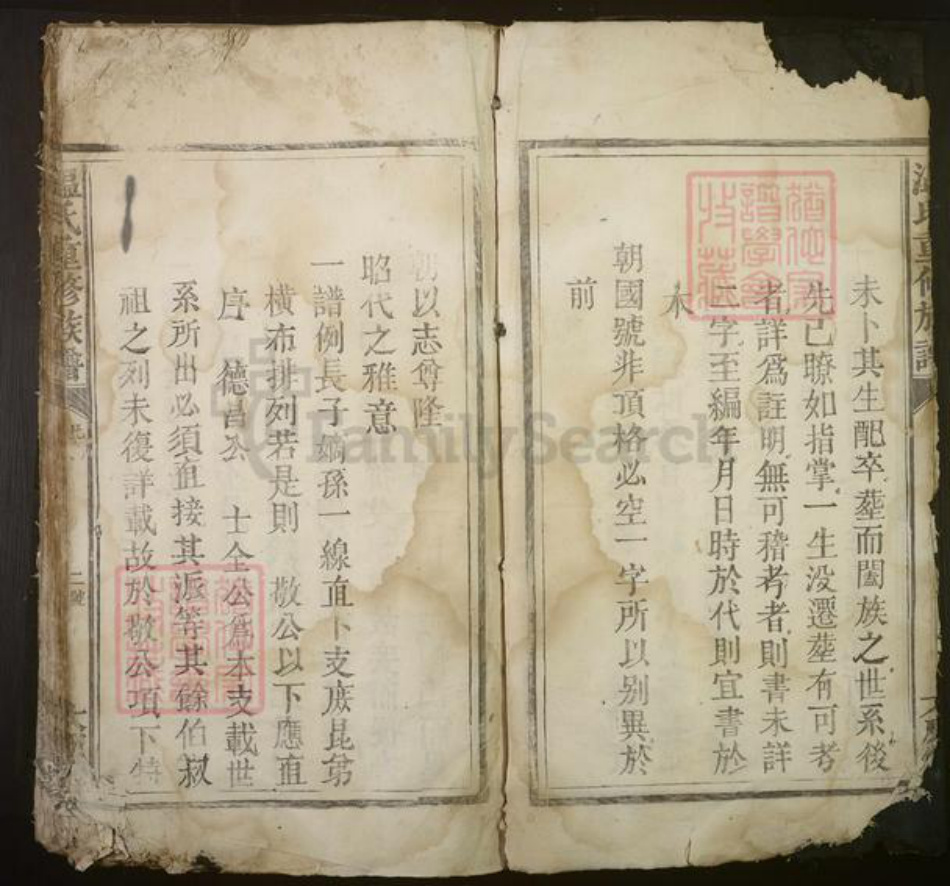 未卜其生配卒塟而闔族之世系後
先已瞭如指掌一生没遷塟有可考
者詳爲註明無可稽考者則書未詳
二字至編年月日時於代則宜書於
末
朝國號非頂格必空一字所以别異於
前
朝以志尊隆
昭代之雅意
一譜例長子嫡孫一線直下支庶昆弟
橫布排列若是則 敬公以下應直
序 德昌公 士全公爲本支載世
系所出必須直接其派等其餘伯叔
祖之列未復詳載故於敬公項下特
溫氏重修族譜
二號
溫氏重修族譜
猶他家譜學會特藏
猶他家譜學會特藏
FamilySearch